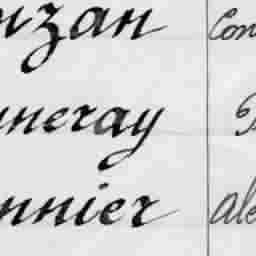 nzan Con
nneray
nnier ale